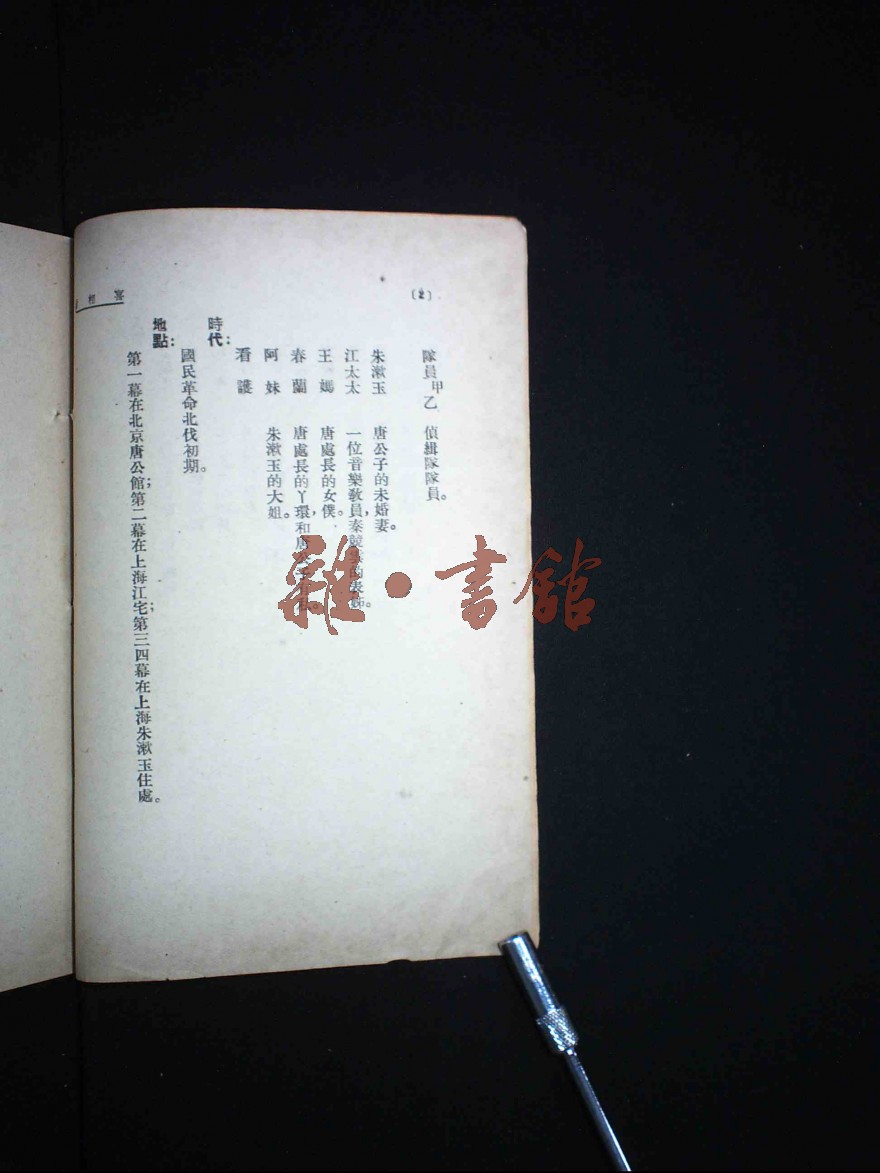 〔2〕
隊員甲乙　偵緝隊隊員。
朱漱玉　唐公子的未婚妻。
江太太　一位音樂教員，秦競
王媽　唐處長的女僕。
春蘭　唐處長的丫環，和唐
阿妹　朱漱玉的大姐。
看護
時代：
國民革命北伐初期。
地點：
第一幕在北京唐公館；第二幕在上海江宅；第三四幕在上海朱漱玉住處。
雜·書館